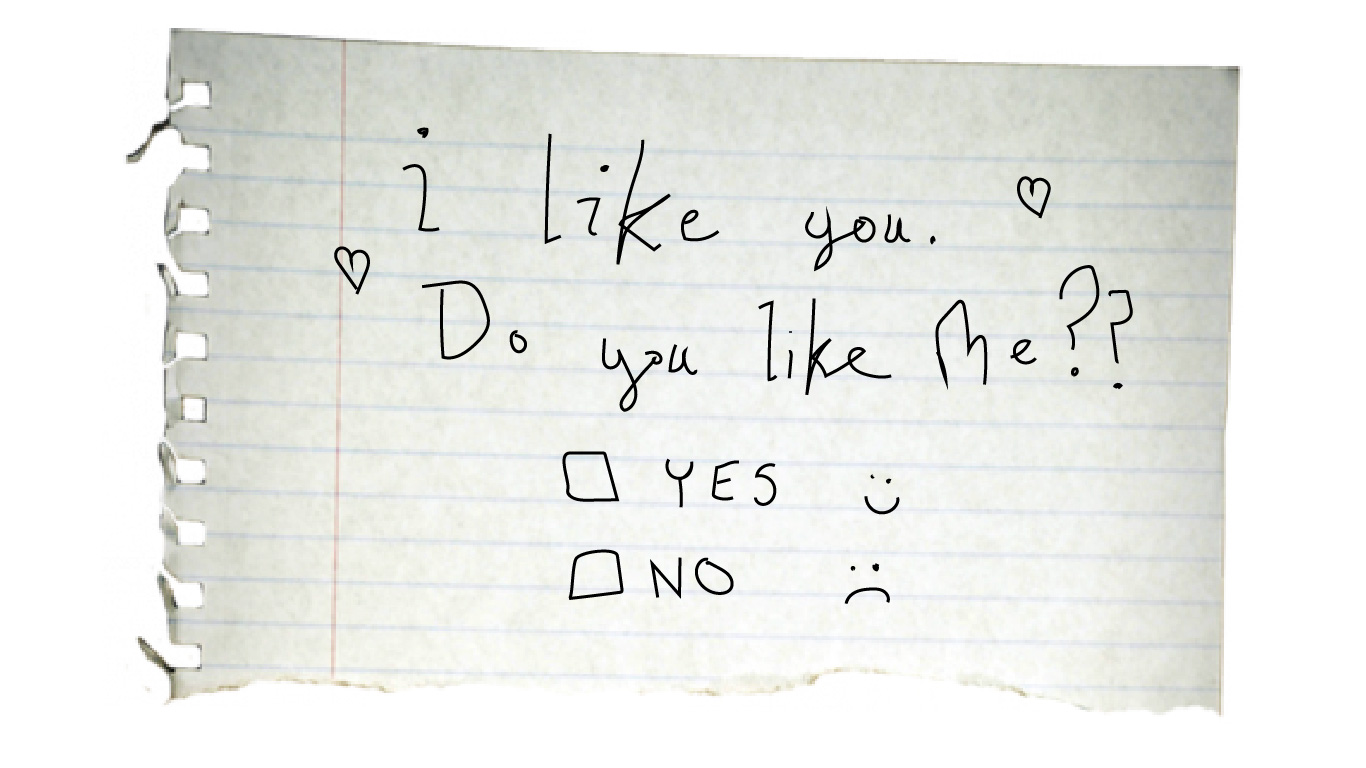 i like you.
Do you like Me??
YES
NO